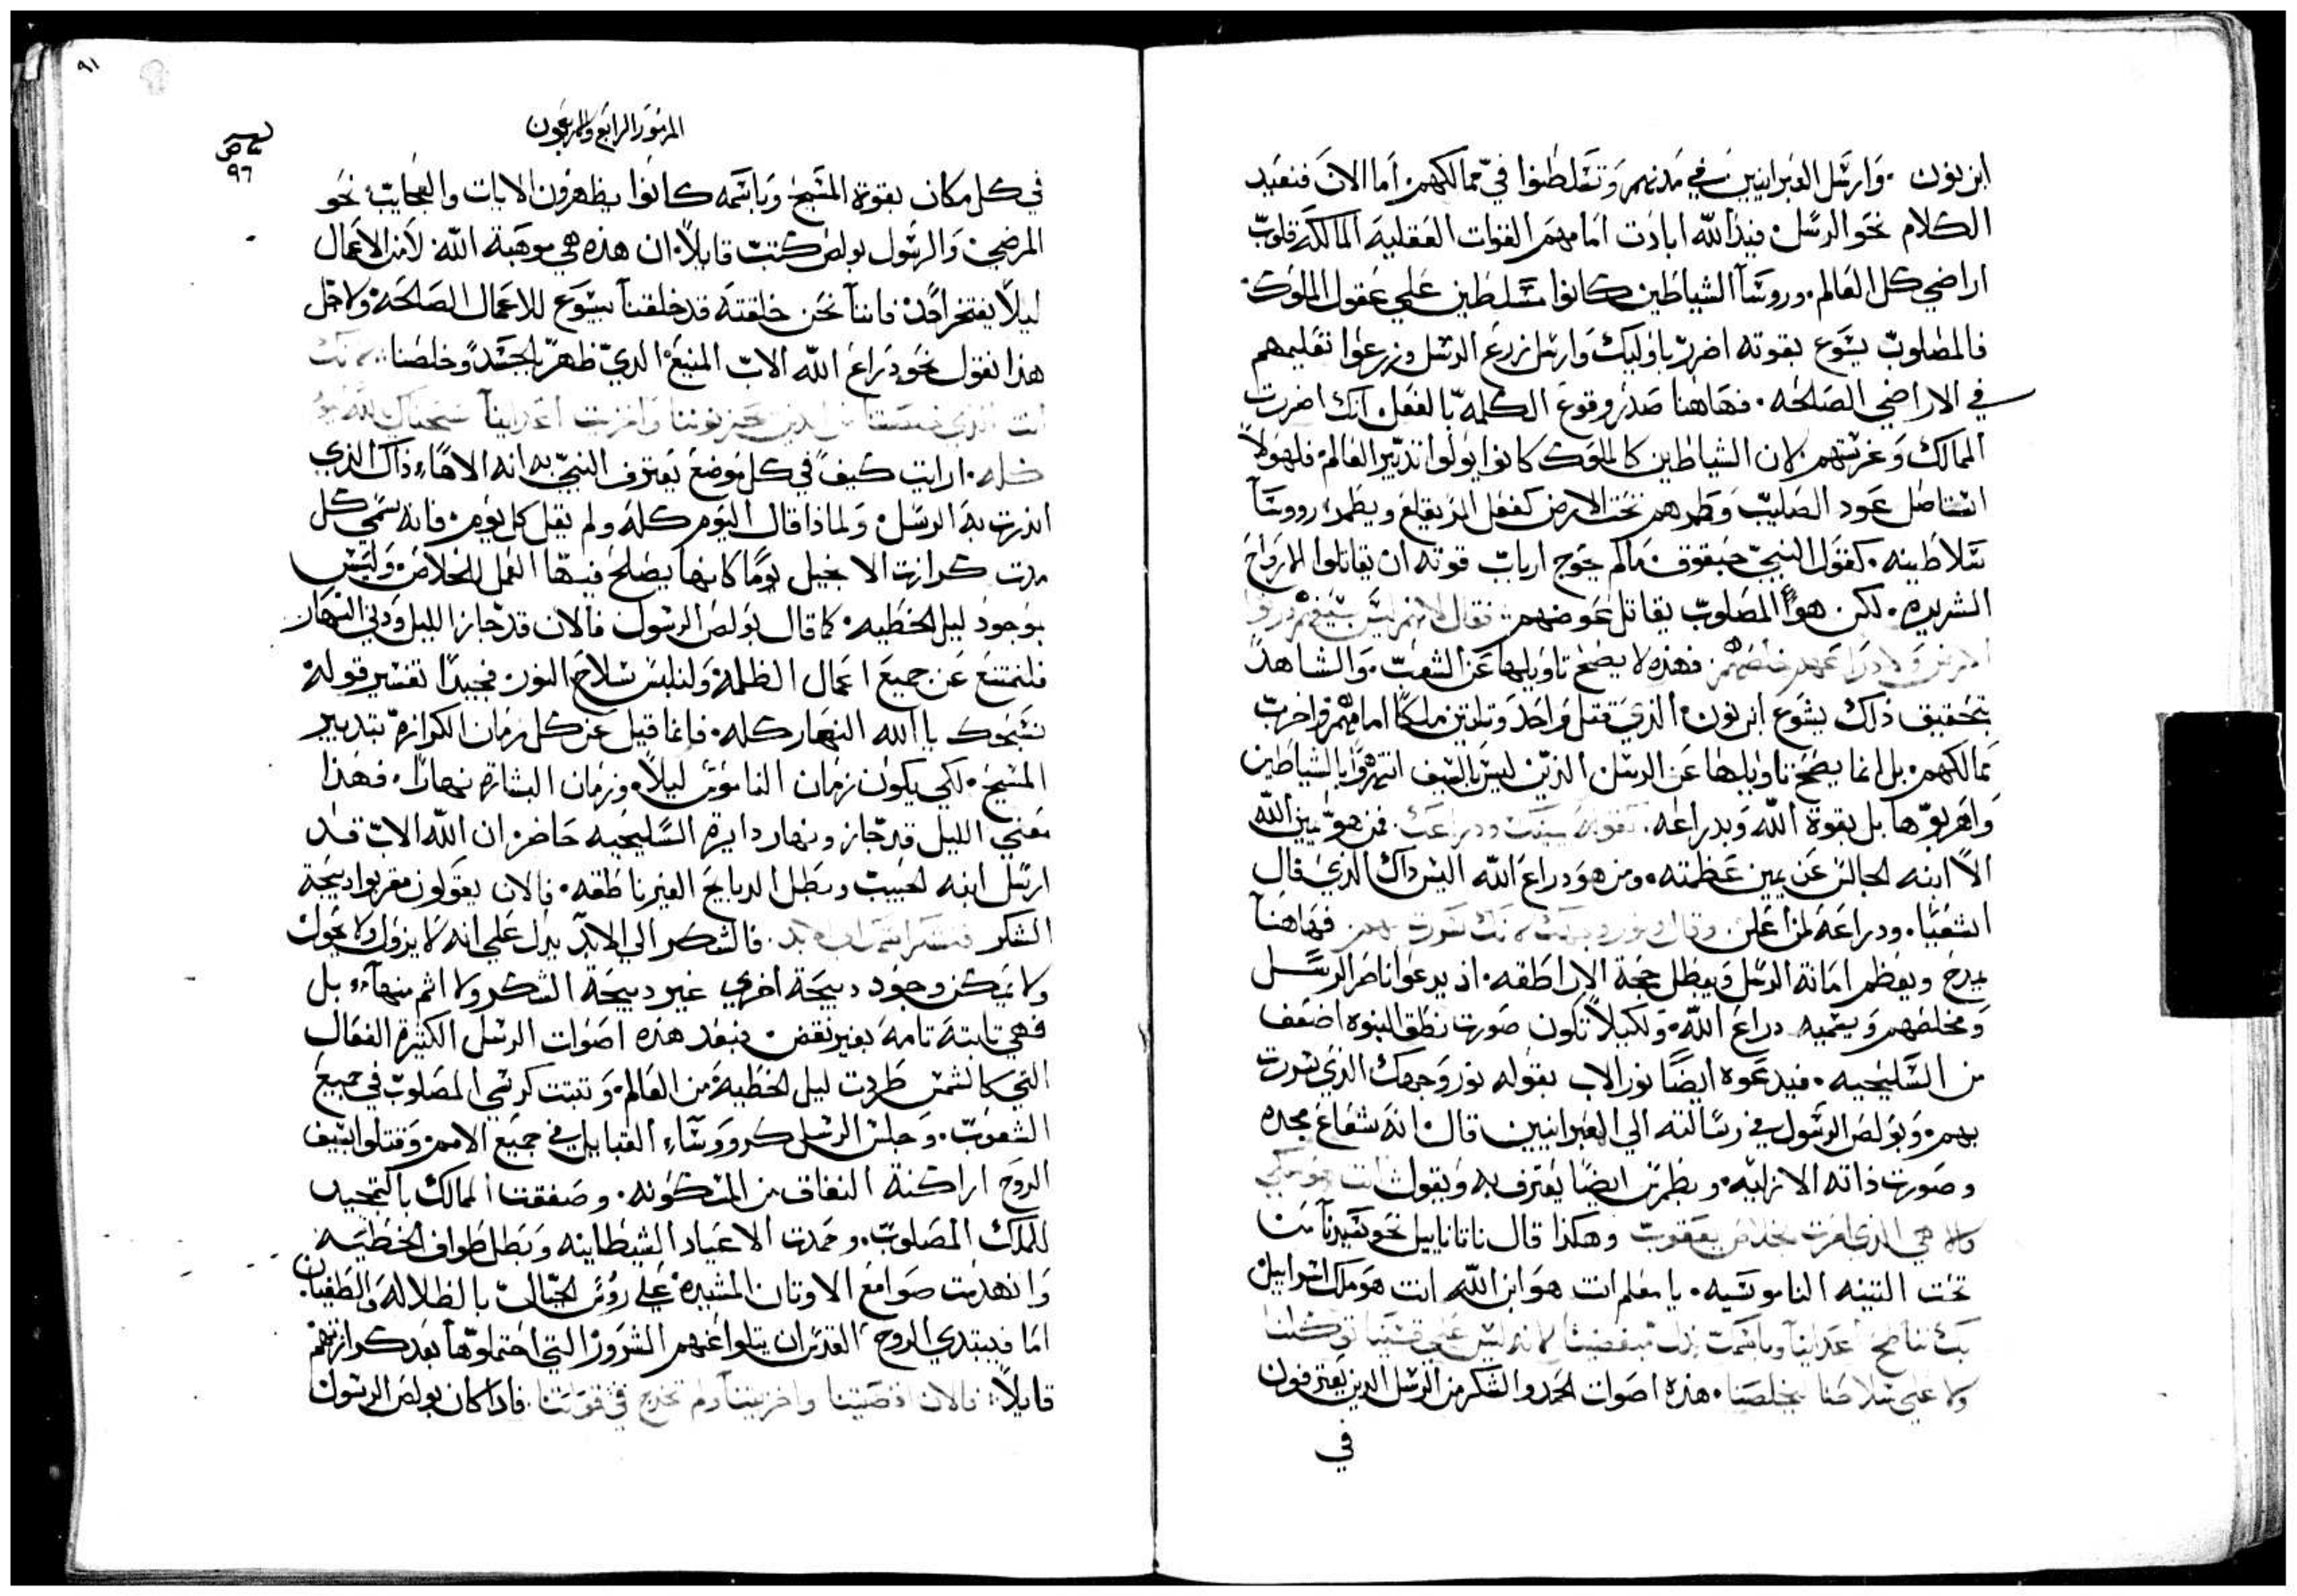 ابن نون. وارسل العبرانيين في مدنهم وتسلطنوا في ممالكهم. اما الان فنعيد
الكلام نحو الرسل. فيد الله ابادت امامهم القوات العقلية المالكة قلوب
اراضي كل العالم. وروسآ الشياطين كانوا مسلطين علي عقول الملوك.
فالمصلوب يسوع بقوته اضرر باوليك وارسل زرع الرسل وزرعوا تعليمهم
في الاراضي الصالحه. فهاهنا صدر وقوع الكلمه بالفعل. انك اضررت
الممالك وغرستهم. لان الشياطين كالملوك كانوا يولوا تدبير العالم. فلهولاً
استاصل عود الصليب وطمرهم تحت الارض كفعل المز يقلع ويطمر رووسآ
سلاطينه. كقول النبي حبقوق. مالم يحوج ارباب قوته ان يقاتلوا الارواح
الشريره. لكن هو المصلوب يقاتل عوضهم. فقال لانهم ليس بسيفهم ورثوا
الارض ولا ذراعهم خلصهم. فهذه لا يصح تاويلها عن الشعب. والشاهد
بتحقيق ذلك يشوع ابن نون. الذي قتل واحد وتلتين ملكاً امامهم واخرب
ممالكهم. بل انما يصح تاويلها عن الرسل الذين ليس بالسيف انتهروا بالشياطين
واهربوها بل بقوة الله وبدراعه. فمن هو يمين الله
الا ابنه الجالس عن يمين عظمته. ومن هو دراع الله اليس داك الذي قال
اشعيا. ودراعه لمن اعلن. وقال ونور وجهك لانك سررت بهم. فهاهنا
يمدح ويعظم امانة الرسل ويبطل حجة الاراطقه. اذ يدعوا ناصر الرسل
ومخلصهم ويسميه دراع الله. ولكيلا تكون صورت نطق النبوه اضعف
من السليحيه. فيدعوه ايضاً نور الاب بقوله نور وجهك الذي سررت
بهم. وبولص الرسول في رسالته الي العبرانيين قال. انه شعاع مجده
وصورت ذاته الازليه. وبطرس ايضاً يعترف به ويقول انت هو ملكي
والاهي الذي امرت بخلاص يعقوب وهكذا قال ناتاناييل نحو سيدنا من
تحت التينه الناموسيه. يا معلم انت هو ابن الله انت هو ملك اسراييل
بك ننطح اعداينا وباسمك نذل مبغضينا لانه ليس علي قسينا توكلنا
ولا علي سلاحنا يخلصنا. هذه اصوات الحمد والشكر من الرسل الدين يعترفون
في
٩١
المزمور الرابع والاربعون
٩٦
في كل مكان بقوة المسيح وباسمه كانوا يظهرون الايات والعجايب نحو
المرضي. والرسول بولص كتب قايلاً. ان هذه هي موهبة الله لا من الاعمال
ليلا يفتخر احد. فاننا نحن خلقته قد خلقنا بيسوع للاعمال الصالحه. ولاجل
هذا نقول نحو دراع الله الاب المنيع الدي ظهر بالجسد وخلصنا. لانك
انت الذي خلصتنا من الذين يحزنوننا واخزيت اعداينا
كله. ارايت كيف في كل موضع يعترف النبي به انه الاهاً. ذاك الذي
انذرت به الرسل. ولماذا قال اليوم كله ولم يقل كل يوم. فانه سمي كل
مدت كرازت الانجيل يوماً كانها يصلح فيها العمل للخلاص. وليس
بوجود ليل الخطيه. كما قال بولص الرسول فالان قد جاز الليل ودني النهار
فلنمتنع عن جميع اعمال الظلمه ولنلبس سلاح النور. فجيداً تفسير قوله
نسبحك يا الله النهار كله. فانما قيل عن كل زمان الكرازه بتدبير
المسيح. لكي يكون زمان الناموس ليلاً. وزمان البشاره نهاراً. فهذا
معني الليل قد جاز ونهار دايرة السليحيه حاضر. ان الله الاب قد
ارسل ابنه الحبيب وبطل الدبايح الغير ناطقه. فالان يقولون مقربوا دبيحة
الشكر فنشكر اسمك الي الابد. فالشكر الي الابد يدل علي انه لا يزول ولا يحول
ولا يمكن وجود دبيحة اخري غير دبيحة الشكر ولا اتم منهآ. بل
فهي تابتة تامة بغير نقض. فبعد هذه اصوات الرسل الكثيرة الفعال
التي كالشمس طردت ليل الخطية من العالم. وتبتت كرسي المصلوب في جميع
الشعوب. وجلس الرسل كرووساء القبايل في جميع الامم. وقتلوا بسيف
الروح اراكنة النفاق من المسكونه. وصفقت الممالك بالتمجيد
للملك المصلوب. وخمدت الاعياد الشيطانيه وبطل طواف الخطيه
وانهدمت صوامع الاوتان المشيده علي روس الجبال بالظلاله والطغيان.
اما فيبتدي الروح القدس ان يتلوا عنهم الشرور التي احتملوها بعد كرازتهم
قايلاً. فالان اقصيتنا واخزيتنا ولم تخرج في قوتنا. فادا كان بولص الرسول